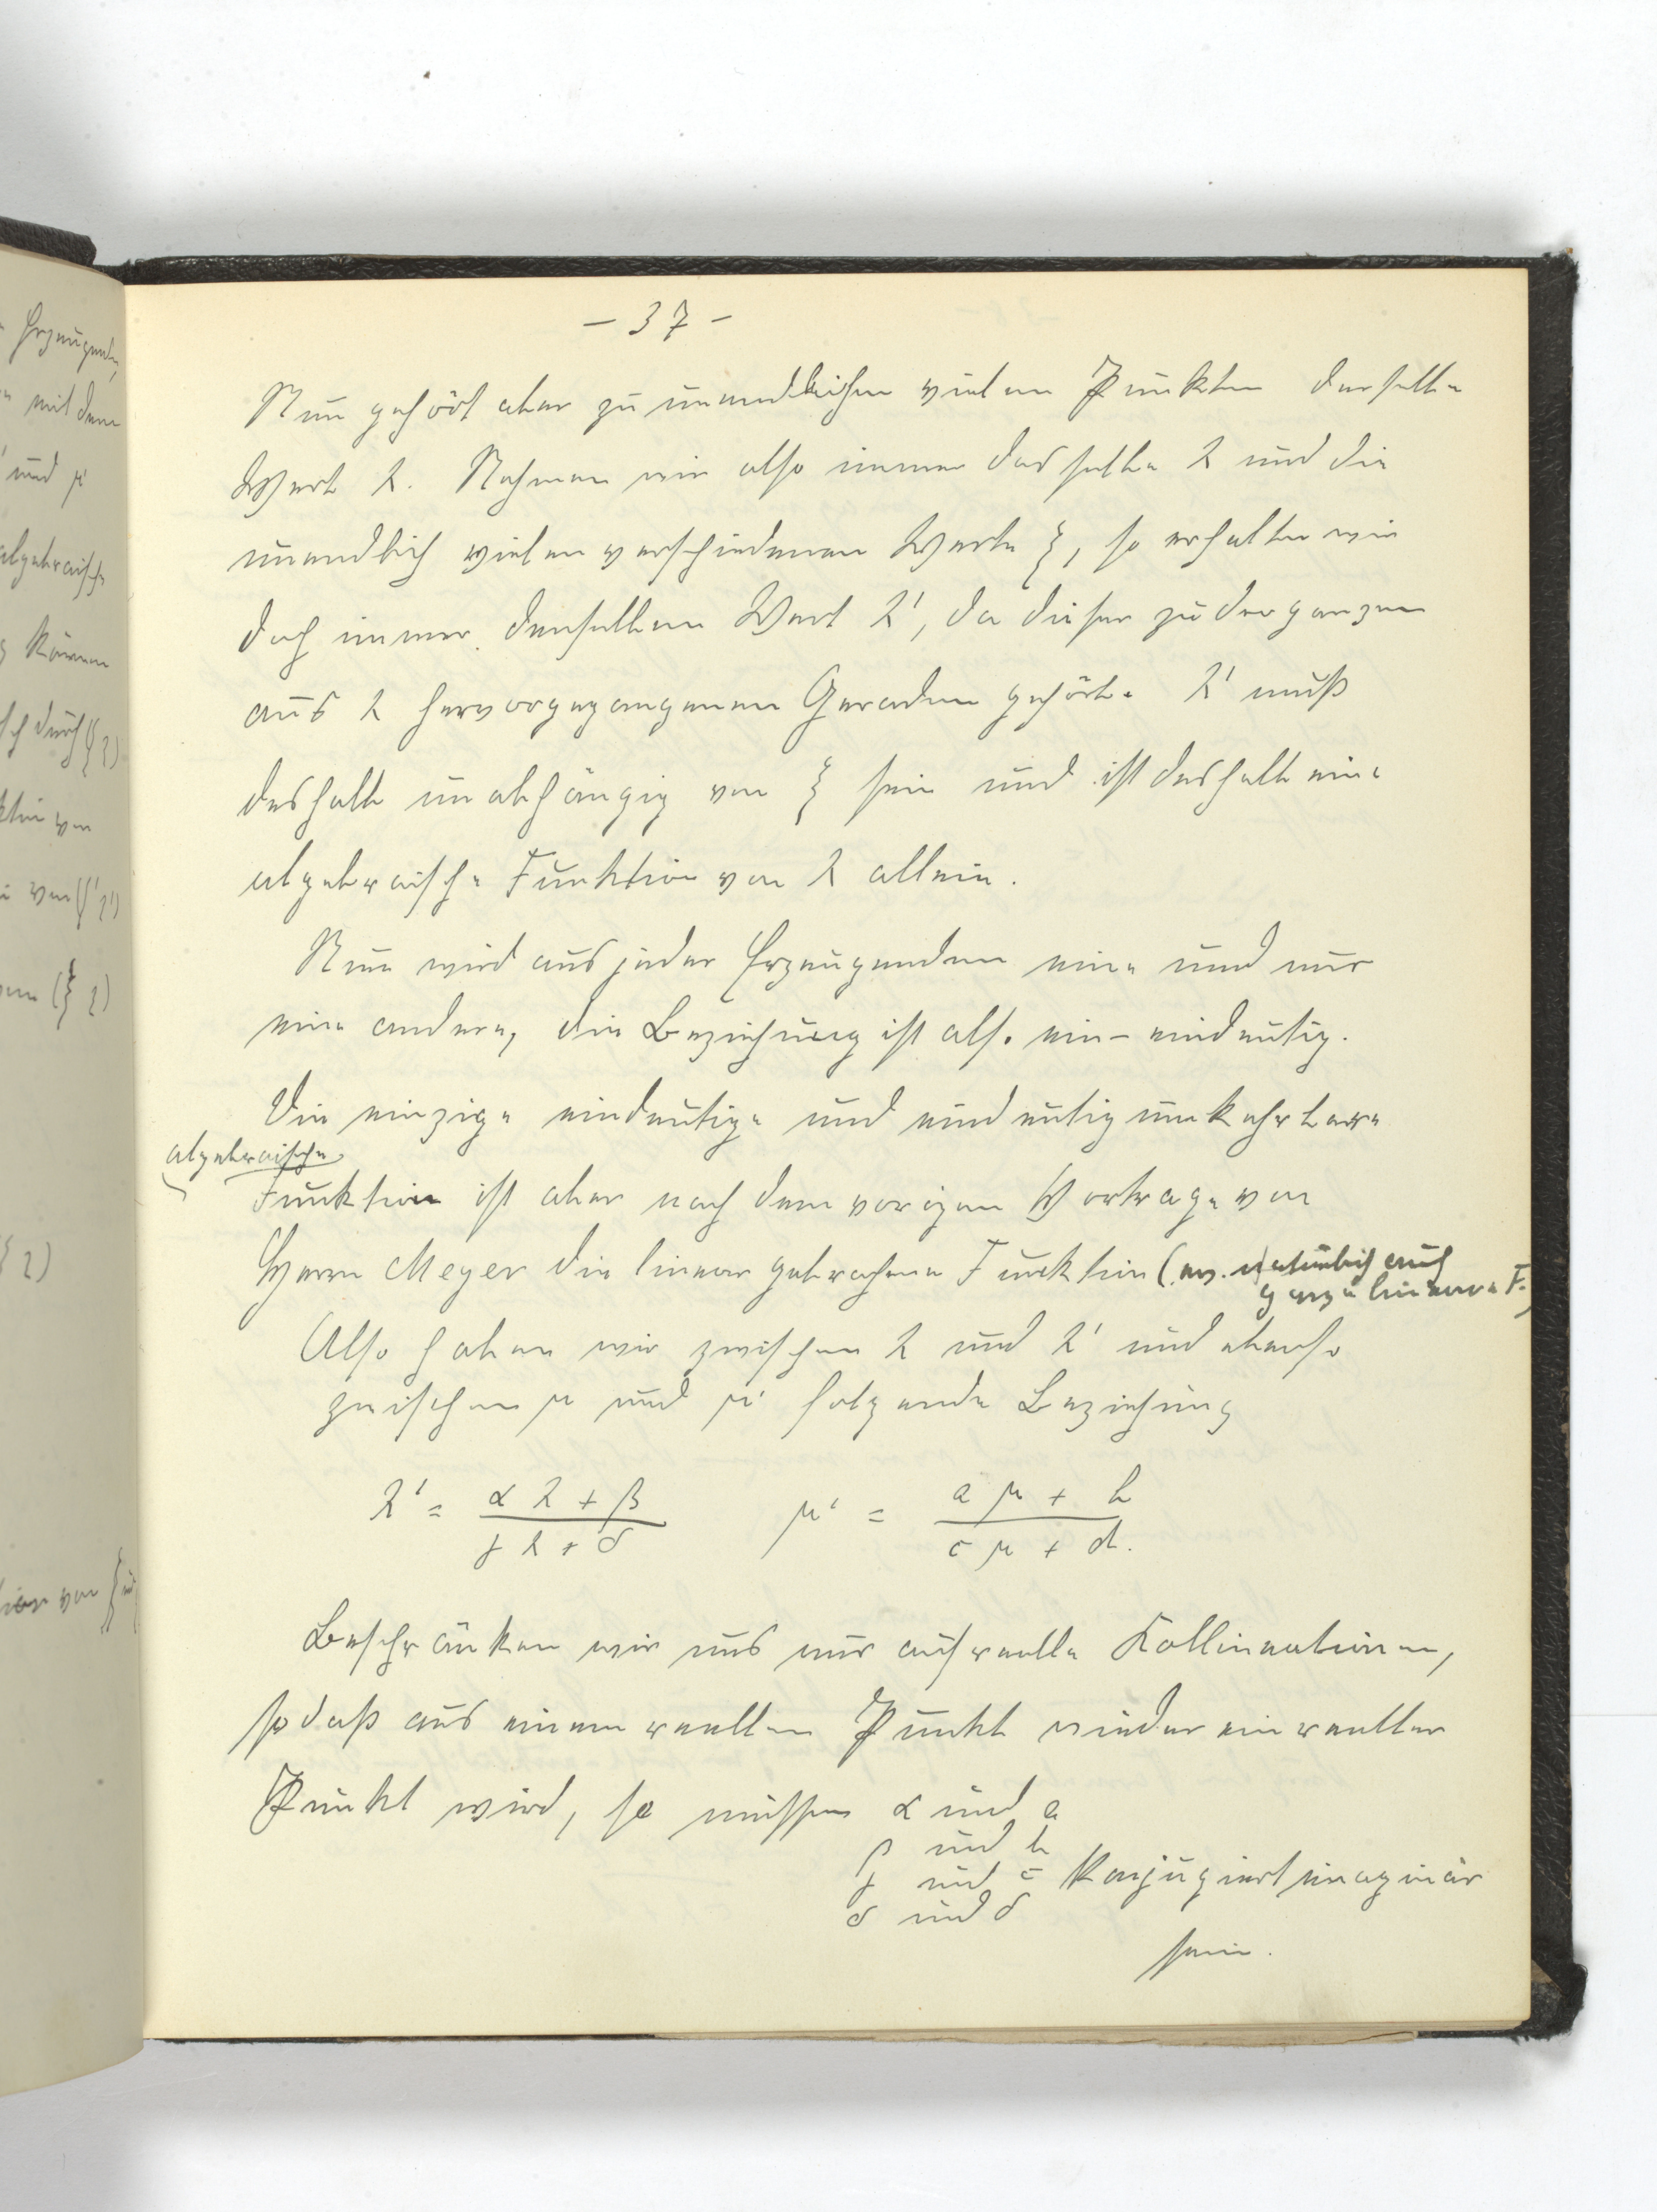 – 37 –
Nun gehört aber zu unendlichen vielen Punkten derselbe
Wert λ. Nehmen wir also immer dasselbe λ und die
unendlich vielen verschiedenen Werte ξ, so erhalten wir
doch immer denselben Wert λ', da dieser zu der ganzen
aus λ hervorgegangenen Geraden gehört. λ' muß
deshalb unabhängig von ξ sein und ist deshalb eine
algebraische Funktion von λ allein.
Nun wird aus jeder Erzeugenden eine und nur
eine andere, die Beziehung ist also ein-eindeutig.
Die einzige eindeutige und eindeutig umkehrbare
algebraische
Funktion ist aber nach dem vorigen Vortrage von
Herrn Meyer die linear gebrochene Funktion (ev. natürlich auch
ganze lineare F.)
Also haben wir zwischen λ und λ' und ebenso
zwischen μ und μ' folgende Beziehung
λ' = (α λ + β) / (γ λ + δ) μ' = (a μ + b) / (c μ + d).
Beschränken wir uns nur auf reelle Kollineationen,
so daß aus einem reellen Punkt wieder ein reeller
Punkt wird, so müssen α und a
β und b
γ und c konjugiert imaginär
δ und d
sein.
Erzeugenden,
mit dem
und μ'
algebraische
können
durch (ξ η)
von
von (ξ' η')
(ξ η)
η)
von ξ und